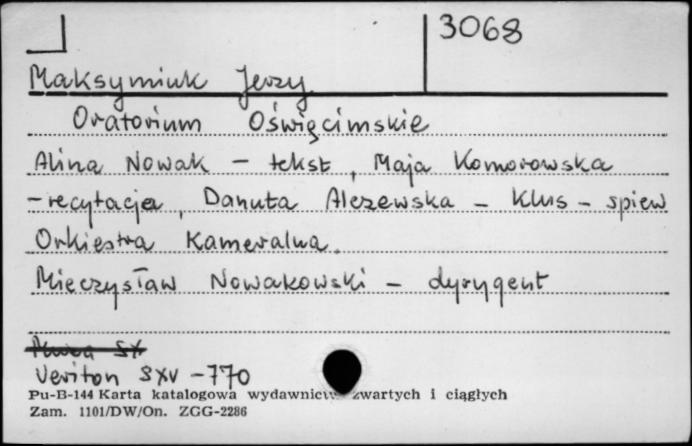 3068
Maksymiuk Jerzy
Oratorium Oświęcimskie
Alina Nowak – tekst, Maja Komorowska
– recytacja, Danuta Alezewska – Klus – spiew
Orkiestra Kameralna.
Mieczysław Nowakowski – dyrygent
Veriton SXV – 770
Pu-B-144 Karta katalogowa wydawnictw zwartych i ciągłych
Zam. 1101/DW/On. ZGG-2286